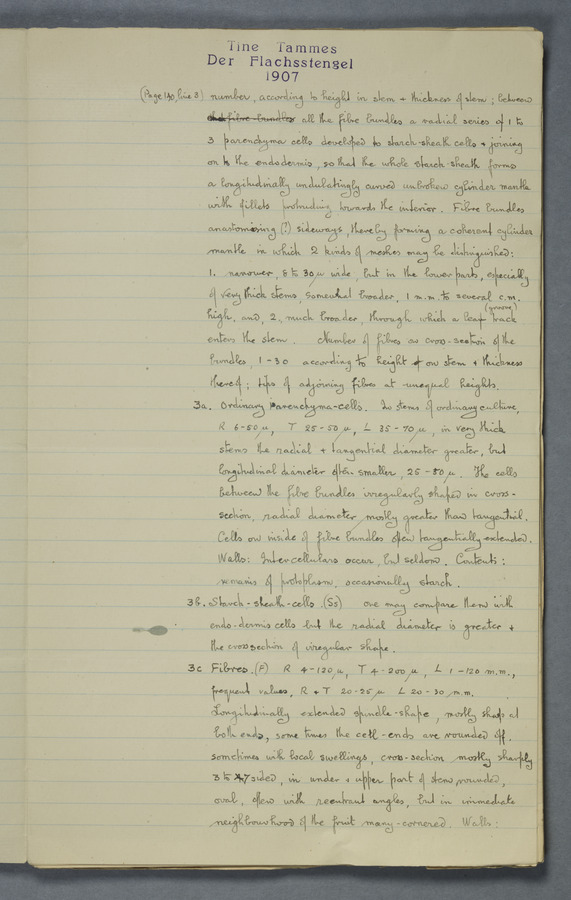 Tine Tammes
Der Flachsstengel
1907
(Page 130, line 3) number, according to height in stem + thickness of stem; between
all the fibre bundles a radial series of 1 to
3 parenchyma cells developed to starch-sheath cells + joining
on to the endodermis, so that the whole starch-sheath forms
a longitudinally undulatingly curved unbroken cylinder mantle
with fillets protruding towards the interior. Fibre bundles
anastomosing (?) sideways, thereby forming a coherent cylinder
mantle in which 2 kinds of meshes may be distinguished:
1. narrower, 8 to 30 µ wide, but in the lower parts, especially
of very thick stems, somewhat broader, 1 m.m. to several c.m.
high, and, 2. much broader, through which a leaf track
enters the stem. Number of fibres on cross-section of the
bundles, 1-30 according to height on stem + thickness
thereof; tips of adjoining fibres at unequal heights.
3a. Ordinary Parenchyma-cells. In stems of ordinary culture,
R 6-50 µ, T 25-50 µ, L 35-70 µ, in very thick
stems the radial + tangential diameter greater, but
longitudinal diameter often smaller, 25-50 µ. The cells
between the fibre bundles irregularly shaped in cross-
section, radial diameter mostly greater than tangential.
Cells on inside of fibre bundles often tangentially extended.
Walls: Intercellulars occur, but seldom. Contents:
remains of protoplasm, occasionally starch.
3b. Starch-sheath-cells (Ss) one may compare them with
endo-dermis cells but the radial diameter is greater +
the cross section of irregular shape.
3c Fibres. (F) R 4-120 µ, T 4-200 µ, L 1-120 m.m.,
frequent values, R + T 20-25 µ L 20-30 m.m.
Longitudinally extended spindle-shape, mostly sharp at
both ends, some times the cell-ends are rounded off.
sometimes with local swellings, cross-section mostly sharply
3 to 7 sided, in under + upper part of stem rounded,
oval, often with reentrant angles, but in immediate
neighbourhood of the fruit many-cornered. Walls: